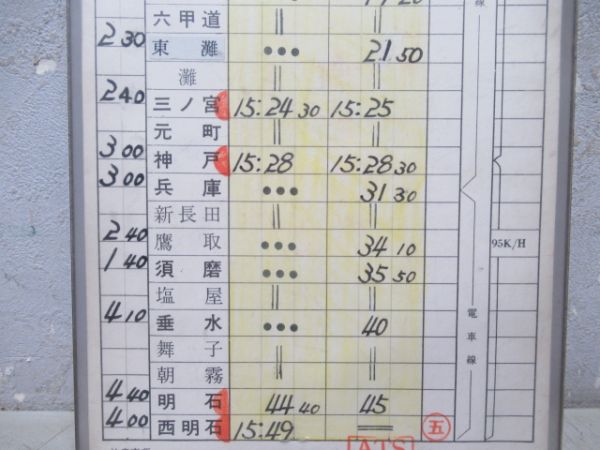 六甲道 || ||
2 30
東灘 ••• 21 50
灘 || ||
2 40
三ノ宮 15:24 30 15:25
元町 || ||
3 00
神戸 15:28 15:28 30
3 00
兵庫 ••• 31 30
新長田 || ||
2 40
鷹取 ••• 34 10
95K/H
1 40
須磨 ••• 35 50
塩屋 || ||
4 10
垂水 ••• 40
電車線
舞子 || ||
朝霧 || ||
4 40
明石 44 40 45
4 00
西明石 15:49 ═
五
ATS